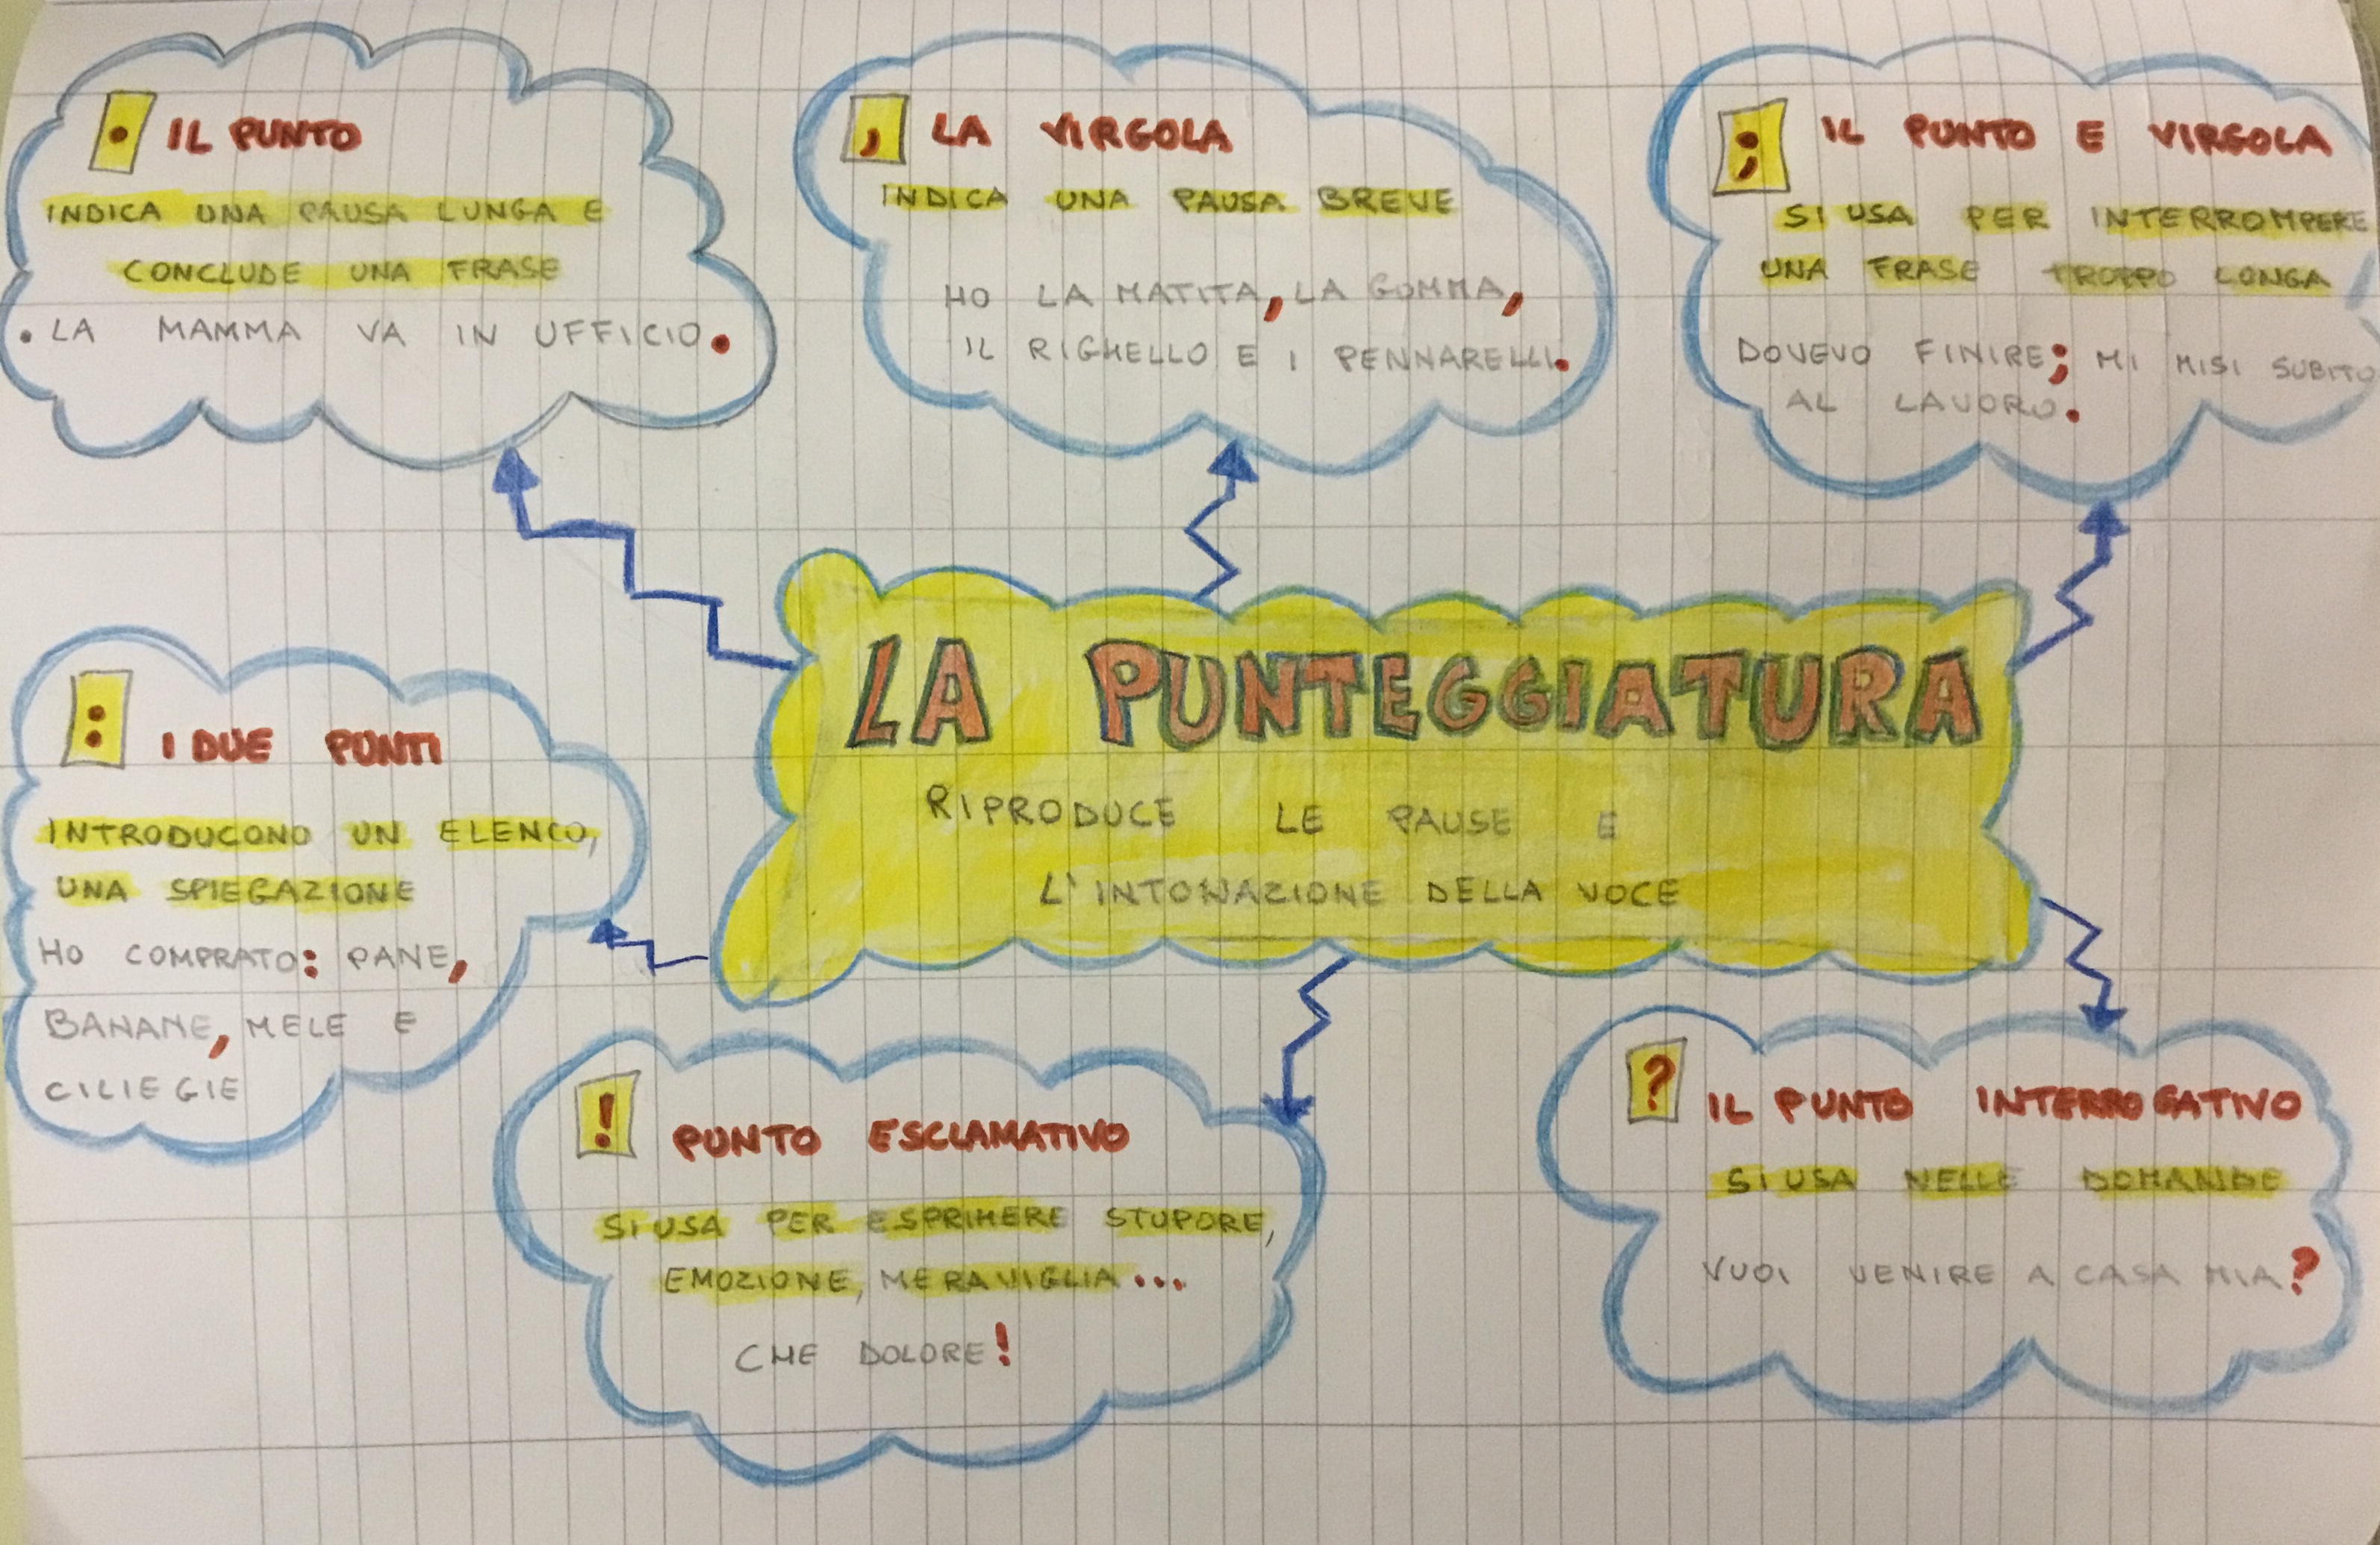 . IL PUNTO
INDICA UNA PAUSA LUNGA E
CONCLUDE UNA FRASE
• LA MAMMA VA IN UFFICIO.
, LA VIRGOLA
INDICA UNA PAUSA BREVE
HO LA MATITA, LA GOMMA,
IL RIGHELLO E I PENNARELLI.
; IL PUNTO E VIRGOLA
SI USA PER INTERROMPERE
UNA FRASE TROPPO LUNGA
DOVEVO FINIRE; MI MISI SUBITO
AL LAVORO.
LA PUNTEGGIATURA
RIPRODUCE LE PAUSE E
L'INTONAZIONE DELLA VOCE
: I DUE PUNTI
INTRODUCONO UN ELENCO,
UNA SPIEGAZIONE
HO COMPRATO: PANE,
BANANE, MELE E
CILIEGIE
! PUNTO ESCLAMATIVO
SI USA PER ESPRIMERE STUPORE,
EMOZIONE, MERAVIGLIA...
CHE DOLORE!
? IL PUNTO INTERROGATIVO
SI USA NELLE DOMANDE
VUOI VENIRE A CASA MIA?